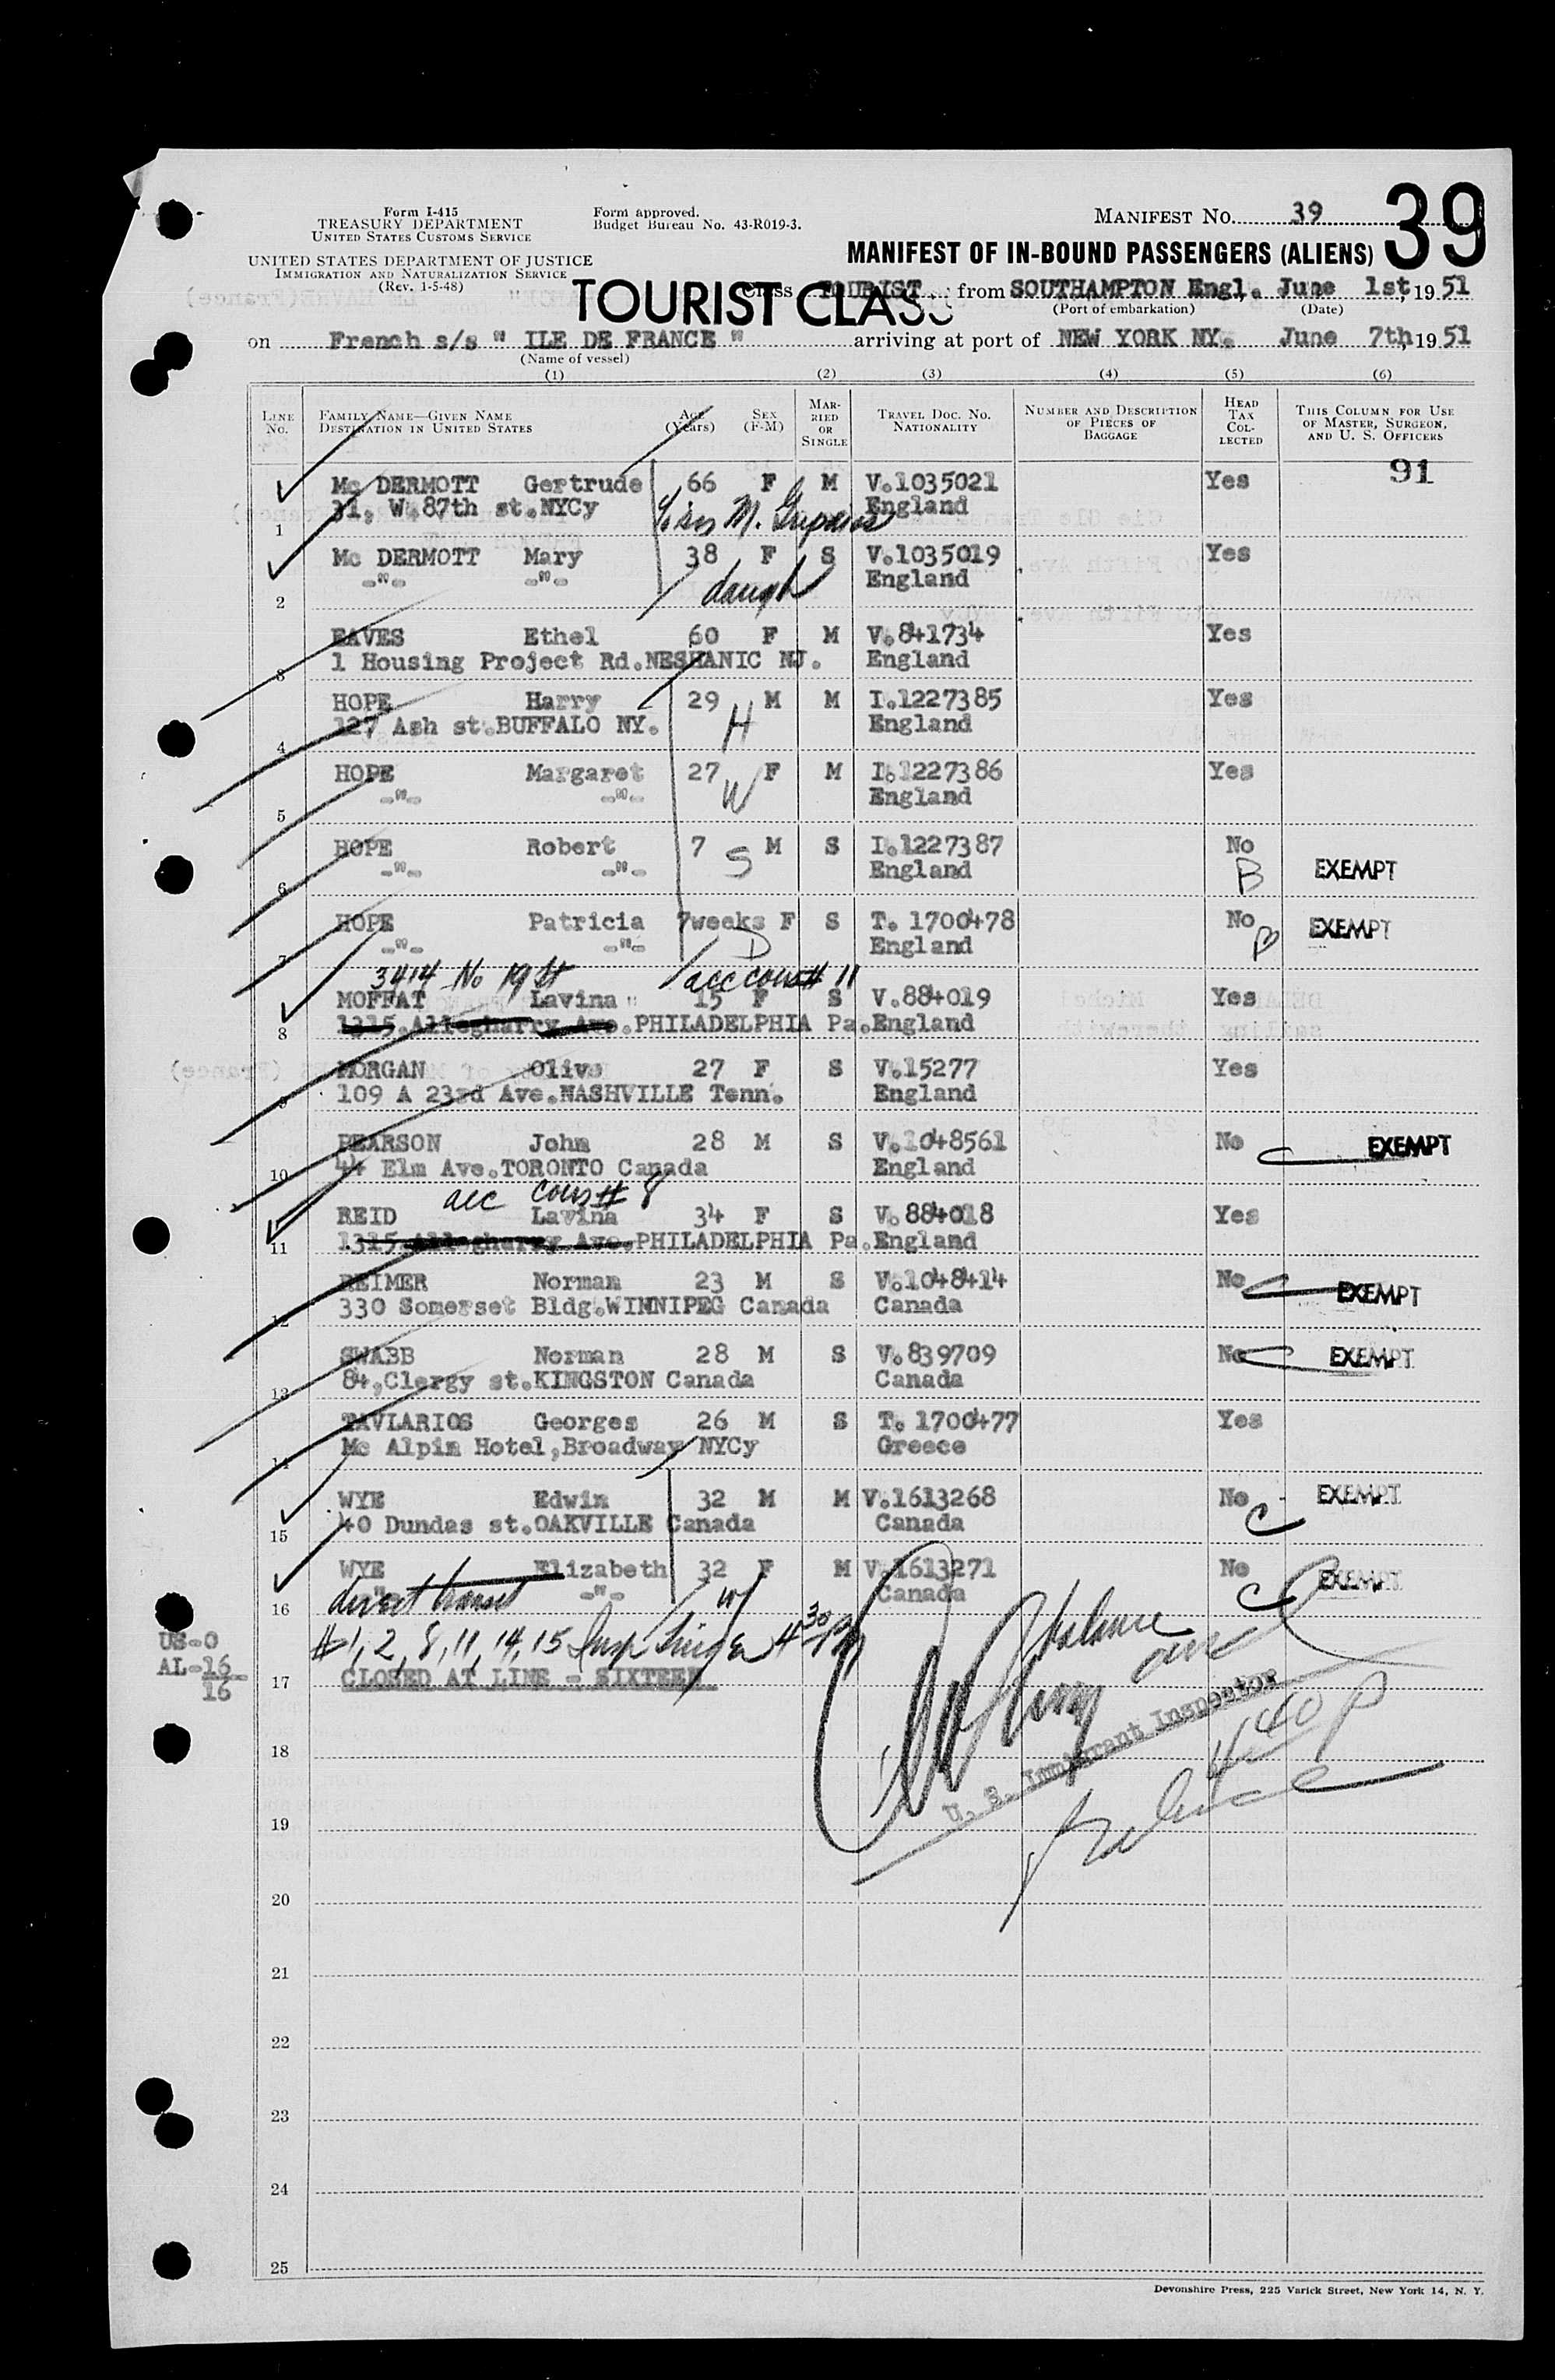 Form I-415
TREASURY DEPARTMENT
UNITED STATES CUSTOMS SERVICE
UNITED STATES DEPARTMENT OF JUSTICE
IMMIGRATION AND NATURALIZATION SERVICE
(Rev. 1-5-48)
Form approved.
Budget Bureau No. 43-R019-3.
MANIFEST NO. 39
39
MANIFEST OF IN-BOUND PASSENGERS (ALIENS)
TOURIST CLASS
Class TOURIST from SOUTHAMPTON Engl. June 1st, 1951
(Port of embarkation) (Date)
on French s/s " ILE DE FRANCE " arriving at port of NEW YORK NY. June 7th, 1951
(Name of vessel)
(1) (2) (3) (4) (5) (6)
LINE NO. FAMILY NAME—GIVEN NAME DESTINATION IN UNITED STATES AGE (Years) SEX (F-M) MARRIED OR SINGLE TRAVEL DOC. NO. NATIONALITY NUMBER AND DESCRIPTION OF PIECES OF BAGGAGE HEAD TAX COLLECTED THIS COLUMN FOR USE OF MASTER, SURGEON, AND U. S. OFFICERS
91
Mc DERMOTT Gertrude 66 F M V.1035021 Yes
1 31, W.87th st.NYCy England
Mc DERMOTT Mary 38 F S V.1035019 Yes
2 -"- -"- daugh England
EAVES Ethel 60 F M V.841734 Yes
3 1 Housing Project Rd.NESHANIC NJ. England
HOPE Harry 29 M M I.1227385 Yes
4 127 Ash st.BUFFALO NY. H England
HOPE Margaret 27 F M I.1227386 Yes
5 -"- -"- W England
HOPE Robert 7 M S I.1227387 No
6 -"- -"- S England B EXEMPT
HOPE Patricia 7weeks F S T. 1700478 No B EXEMPT
7 -"- -"- D England
3414 No 19 St acc cous # 11
MOFFAT Lavina " 15 F S V.884019 Yes
8 1315.Allegharry Ave.PHILADELPHIA Pa.England
MORGAN Olive 27 F S V.15277 Yes
9 109 A 23rd Ave.NASHVILLE Tenn. England
PEARSON John 28 M S V.1048561 No EXEMPT
10 44 Elm Ave.TORONTO Canada England
acc cous # 8
REID Lavina 34 F S V.884018 Yes
11 1315.Allegharry Ave.PHILADELPHIA Pa.England
REIMER Norman 23 M S V.1048414 No EXEMPT
12 330 Somerset Bldg.WINNIPEG Canada Canada
SWABB Norman 28 M S V.839709 No EXEMPT
13 84,Clergy st.KINGSTON Canada Canada
TAVLARIOS Georges 26 M S T. 1700477 Yes
14 Mc Alpin Hotel,Broadway NYCy Greece
WYE Edwin 32 M M V.1613268 No EXEMPT
15 40 Dundas st.OAKVILLE Canada Canada C
WYE Elizabeth 32 F M V.1613271 No EXEMPT
16 direct transit -"- w Canada C
US-0
AL-16
16
#1, 2, 8, 11, 14, 15 Insp 4 30
17 CLOSED AT LINE - SIXTEEN
balance
U. S. Immigrant Inspector
4 40 P
18
19
20
21
22
23
24
25
Devonshire Press, 225 Varick Street, New York 14, N. Y.